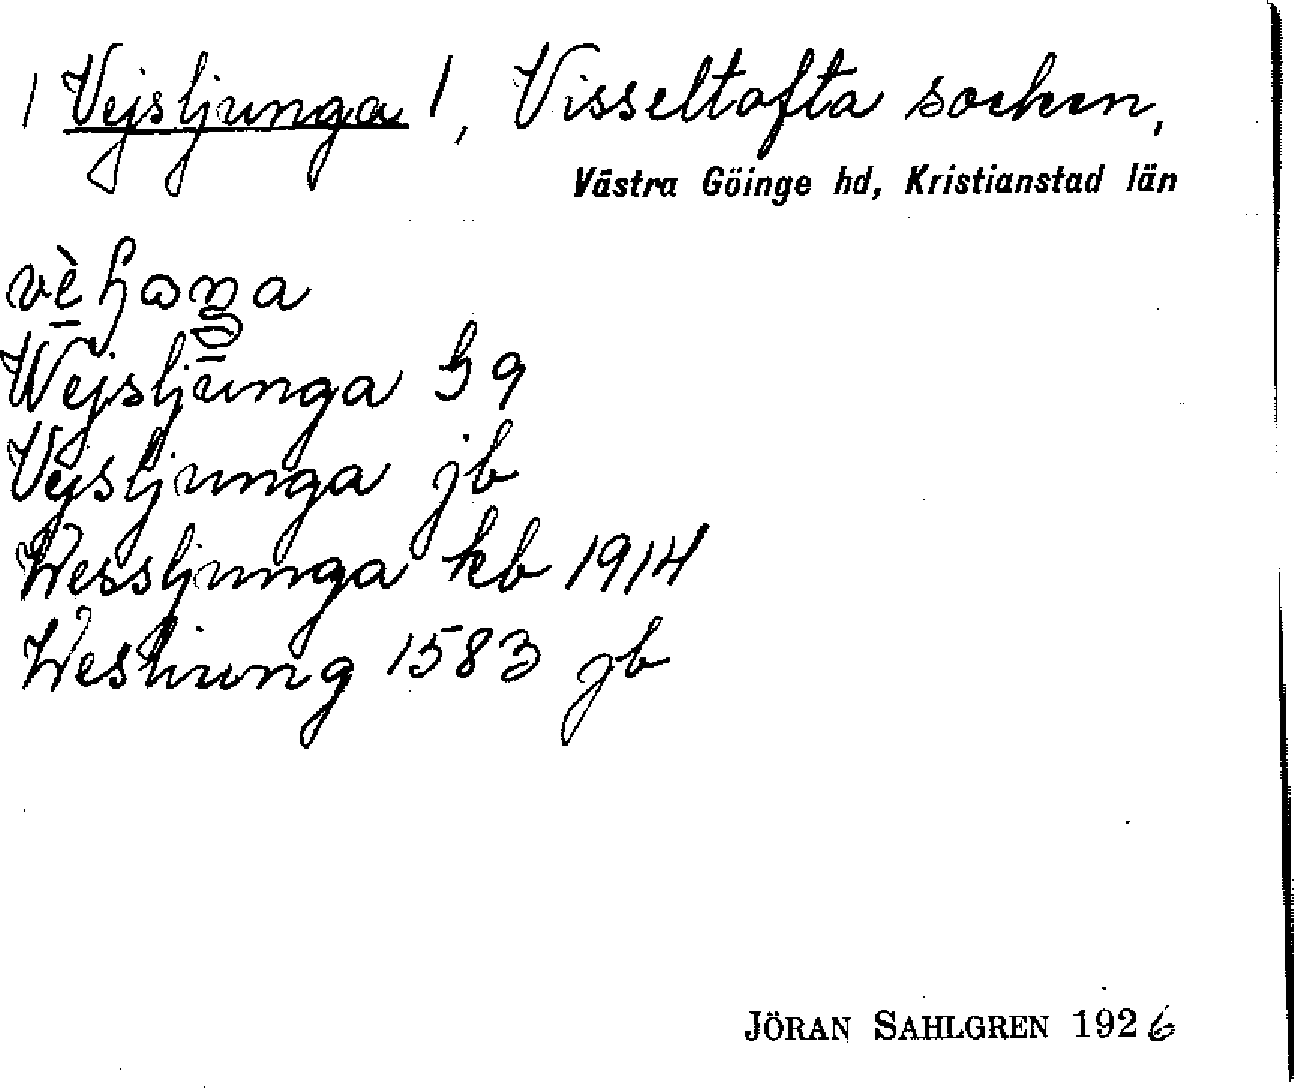 / Vejsljunga /, Visseltofta socken,
Västra Göinge hd, Kristianstad län
Wejsljunga
Vejsljunga jb
Wessljunga kb 1914
Wesliung 1583 jb
JÖRAN SAHLGREN 1926